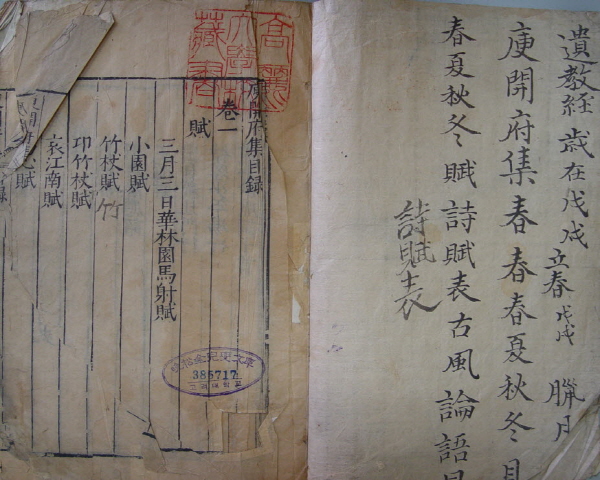 遺教經 歲在戊戌 立春 戊戌 臘月
庾開府集春春春夏秋冬
春夏秋冬賦詩賦表古風論語
詩賦表
庾開府集目錄
卷一
賦
三月三日華林園馬射賦
小園賦
竹杖賦 竹
邛竹杖賦
哀江南賦
賦
385717